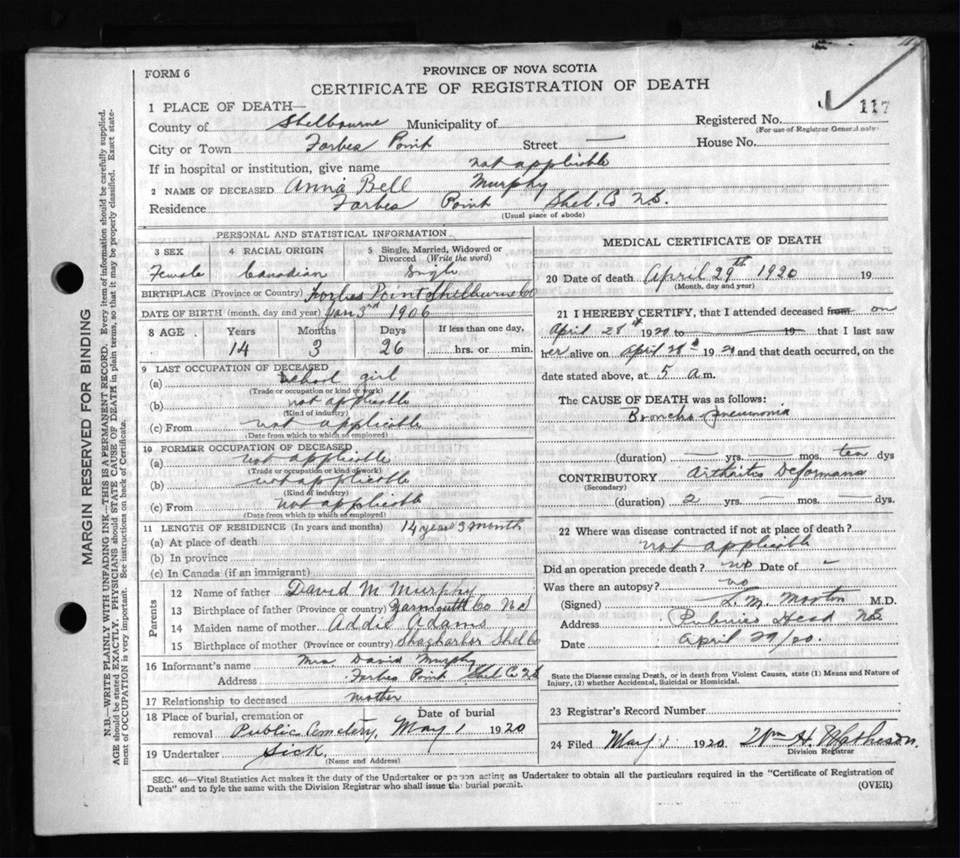 FORM 6
PROVINCE OF NOVA SCOTIA
CERTIFICATE OF REGISTRATION OF DEATH
117
1 PLACE OF DEATH—
County of Shelbourne Municipality of Registered No.
(For use of Registrar General only)
City or Town Forbes Point Street — House No.
If in hospital or institution, give name not applicable
2 NAME OF DECEASED Anna Bell Murphy
Residence Forbes Point Shel. Co N.S.
(Usual place of abode)
PERSONAL AND STATISTICAL INFORMATION
3 SEX 4 RACIAL ORIGIN 5 Single, Married, Widowed or Divorced (Write the word)
Female Canadian Single
BIRTHPLACE (Province or Country) Forbes Point Shelburne Co
DATE OF BIRTH (month, day and year) Jan 3rd 1906
8 AGE Years Months Days If less than one day,
14 3 26 hrs. or min.
9 LAST OCCUPATION OF DECEASED
(a) School girl
(Trade or occupation or kind of work)
(b) not applicable
(Kind of industry)
(c) From not applicable
(Date from which to which so employed)
10 FORMER OCCUPATION OF DECEASED
(a) not applicable
(Trade or occupation or kind of work)
(b) not applicable
(Kind of industry)
(c) From not applicable
(Date from which to which so employed)
11 LENGTH OF RESIDENCE (In years and months) 14 years 3 month
(a) At place of death
(b) In province
(c) In Canada (if an immigrant)
Parents
12 Name of father David M Murphy
13 Birthplace of father (Province or country) Yarmouth Co N S
14 Maiden name of mother Addie Adams
15 Birthplace of mother (Province or country) Shagharbor Shel Co
16 Informant's name Mrs. David Murphy
Address Forbes Point Shel Co N S
17 Relationship to deceased mother
18 Place of burial, cremation or removal Public Cemetery, Date of burial May 1 1920
19 Undertaker Sick.
(Name and Address)
MEDICAL CERTIFICATE OF DEATH
20 Date of death April 29th 1920 19
(Month, day and year)
21 I HEREBY CERTIFY, that I attended deceased from on
April 28th 1920 to 19 that I last saw
her alive on April 28th 1920 and that death occurred, on the
date stated above, at 5 a.m.
The CAUSE OF DEATH was as follows:
Broncho pneumonia
(duration) — yrs. — mos. ten dys
CONTRIBUTORY Arthritis Deformans
(Secondary)
(duration) 2 yrs. — mos. — dys.
22 Where was disease contracted if not at place of death?
not applicable
Did an operation precede death? no Date of -
Was there an autopsy? no
(Signed) M.D.
Address Head N.S.
Date April 29/20.
State the Disease causing Death, or in death from Violent Causes, state (1) Means and Nature of
Injury, (2) whether Accidental, Suicidal or Homicidal.
23 Registrar's Record Number
24 Filed May 1 1920 Wm H. Matheson.
Division Registrar
SEC. 46—Vital Statistics Act makes it the duty of the Undertaker or person acting as Undertaker to obtain all the particulars required in the "Certificate of Registration of
Death" and to fyle the same with the Division Registrar who shall issue the burial permit.
(OVER)
MARGIN RESERVED FOR BINDING
N.B.—WRITE PLAINLY WITH UNFADING INK—THIS IS A PERMANENT RECORD. Every item of information should be carefully supplied.
AGE should be stated EXACTLY. PHYSICIANS should STATE CAUSE OF DEATH in plain terms, so that it may be properly classified. Exact state-
ment of OCCUPATION is very important. See instructions on back of Certificate.